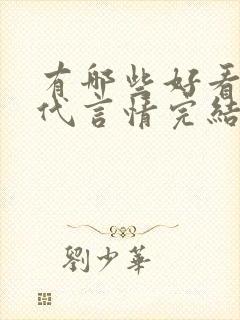 有哪些好看
代言情完結
劉少華